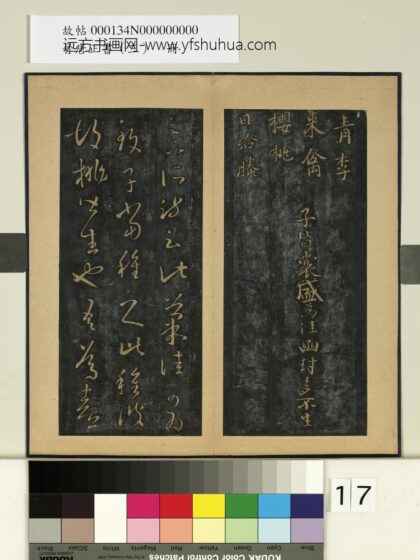 故帖 000134N000000000
远方书画网-www.yfshuhua.com
青李
來禽
櫻桃
日給滕
子皆囊盛為佳函封多不生
足下所疏云此菓佳可為
致子當種之此種彼
胡桃皆生也吾篤喜
17
Black
3/Color
White
Magenta
Red
Yellow
Green
Cyan
Blue
KODAK Color Control Patches